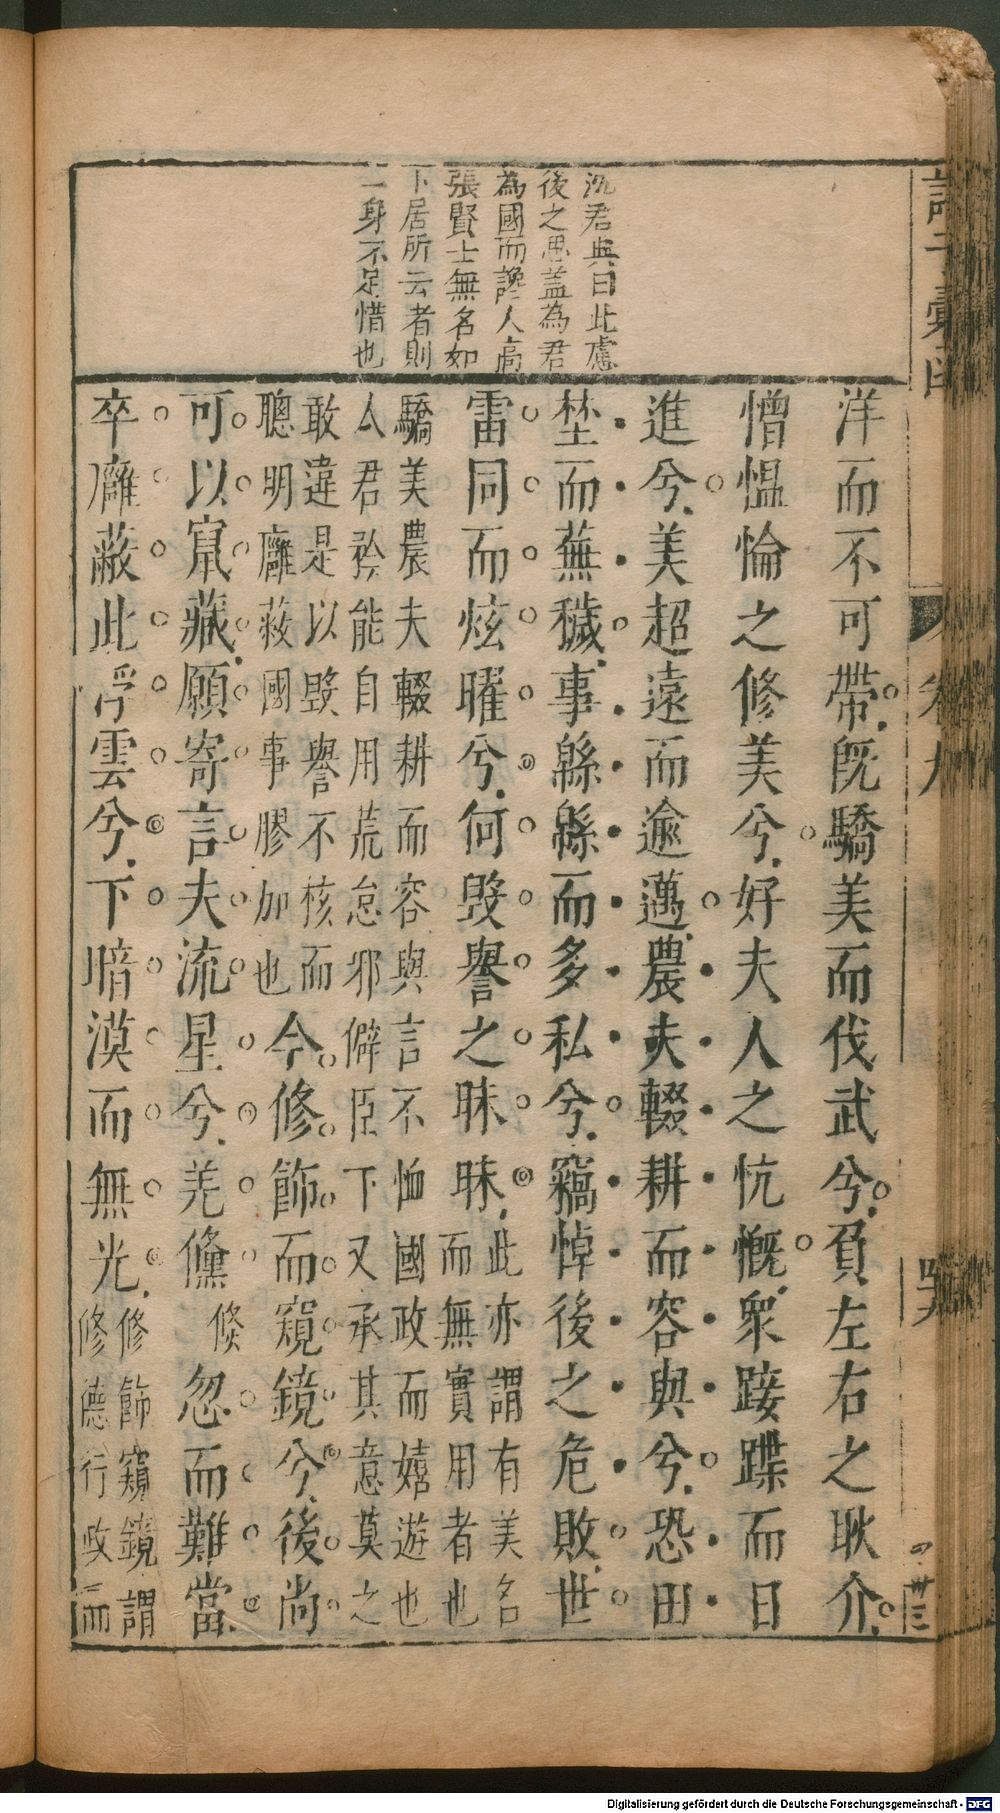 沈君典曰此慮
後之思蓋為君
為國而讒人高
張賢士無名如
卜居所云者則
一身不足惜也
洋而不可帶既驕美而伐武兮負左右之耿介
憎慍惀之修美兮好夫人之忼慨眾踥蹀而日
進兮美超遠而逾邁農夫輟耕而容與兮恐田
埜而蕪穢事緜緜而多私兮竊悼後之危敗世
雷同而炫曜兮何毀譽之昧昧此亦謂有美名
而無實用者也
驕美農夫輟耕而容與言不恤國政而嬉遊也
人君矜能自用荒怠邪僻臣下又承其意莫之
敢違是以毀譽不核而
聰明廱蔽國事膠加也今修飾而窺鏡兮後尚
可以竄藏願寄言夫流星兮羌儵倏忽而難當
卒廱蔽此浮雲兮下暗漠而無光修飾窺鏡謂
修德行政而
卷九
四卅三
Digitalisierung gefördert durch die Deutsche Forschungsgemeinschaft - DFG